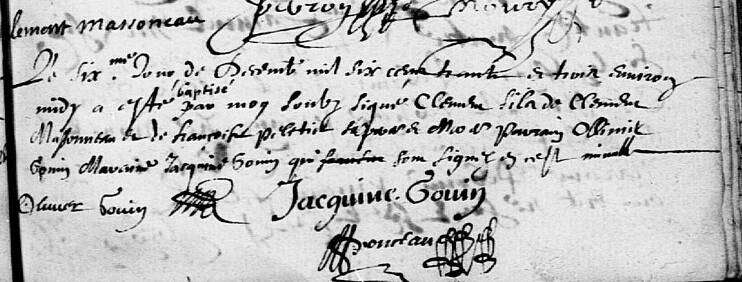 lement Massoneau
Le six me Jour de Decemb mil six cent trante et trois environ
midy a esté baptisé par moy soubz signé Clement filz de Clement
Massonneau et de francoise peletier ses pere et Mere Parain Ollivier
Gouin Maraine Jacquine Gouin qui sont signez en cest
Olivier Gouin
Jacquine Gouin